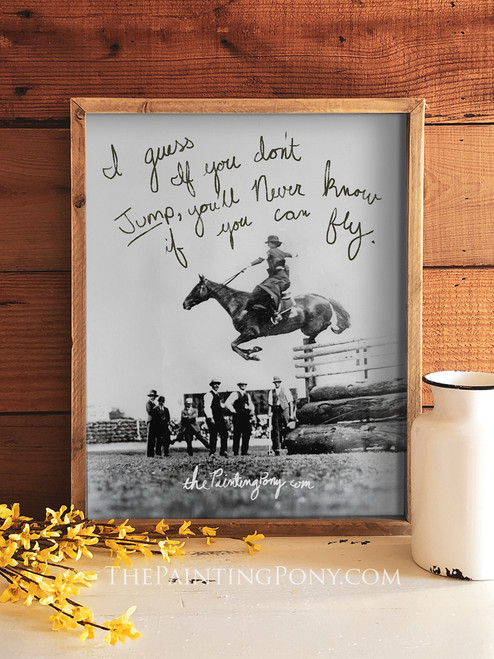 I guess
If you don't
Jump, you'll Never know
if you can fly.
thePaintingPony.com
THEPAINTINGPONY.COM